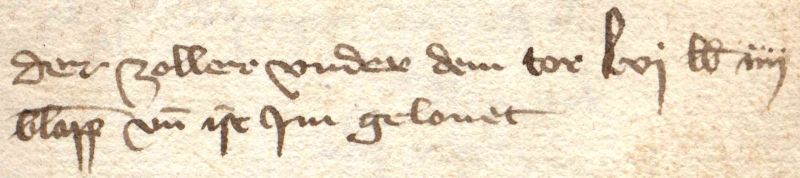 der zoller vnder dem tor lxvj lb iiij
blapp vn̄ ist Im gelonet